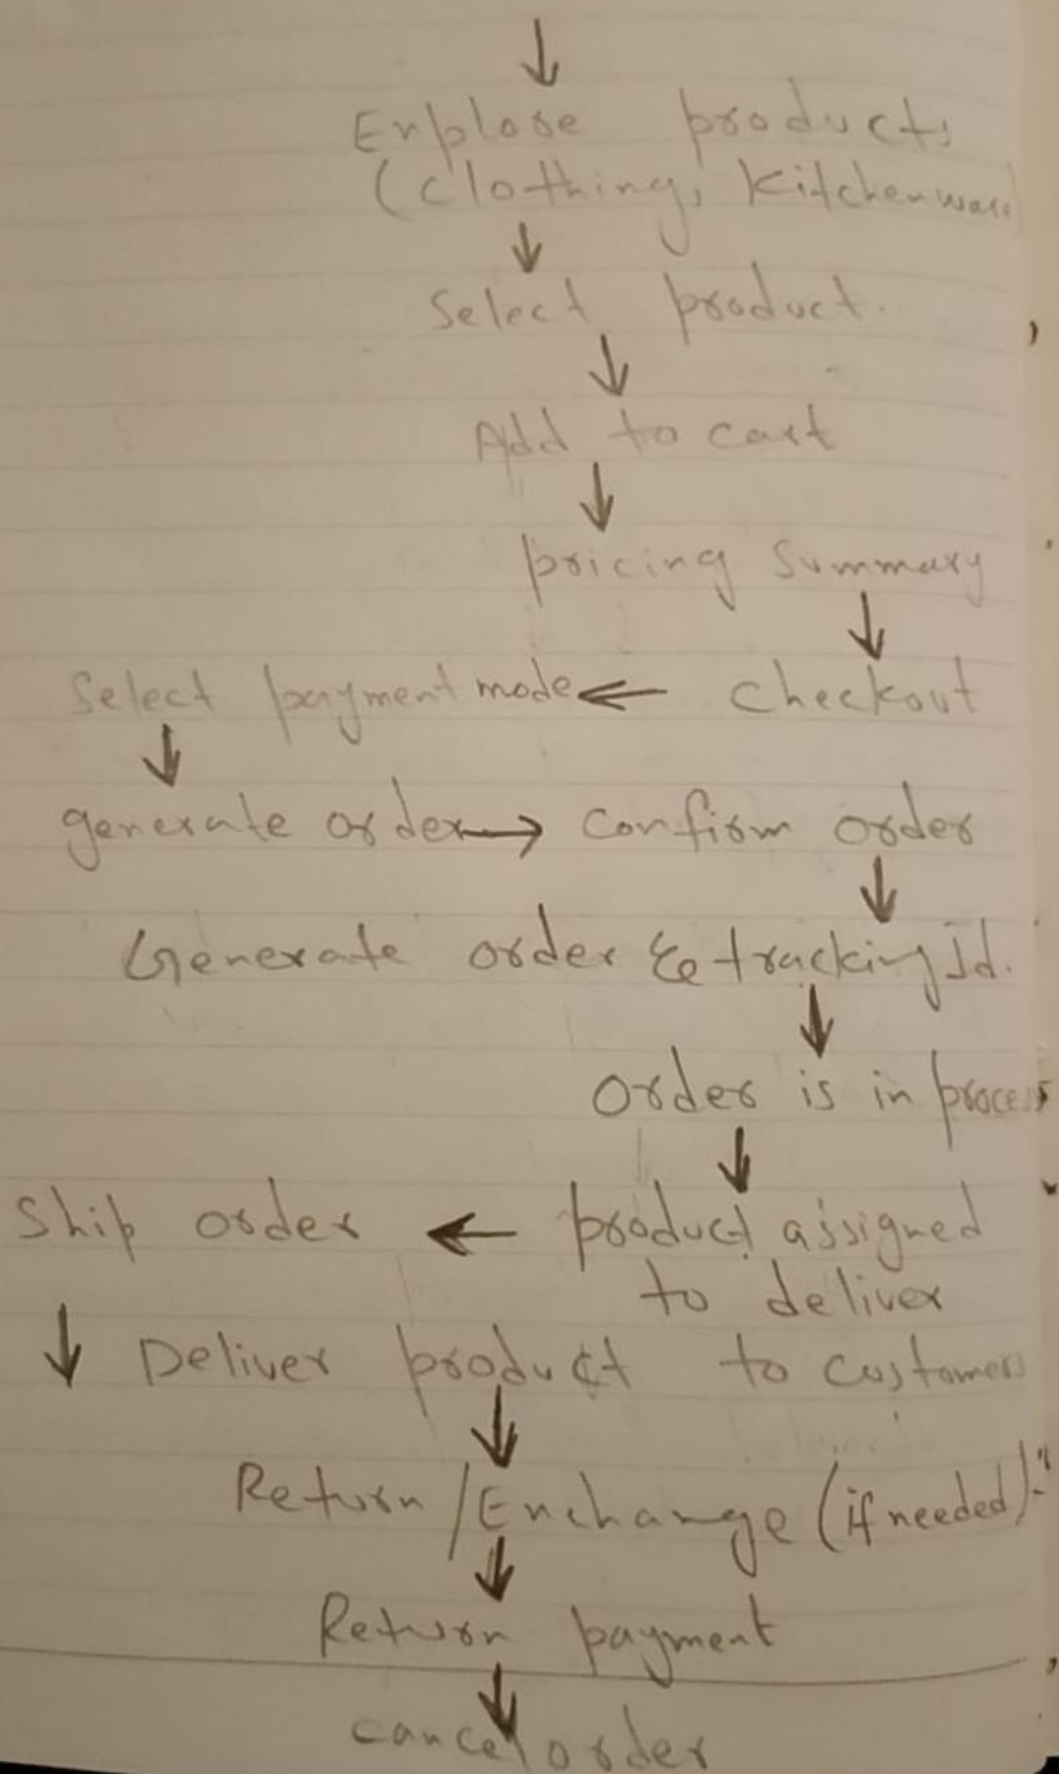 ↓
Explore products
(Clothing, Kitchenware)
↓
Select product.
↓
Add to cart
↓
pricing Summary
↓
Select payment mode ← checkout
↓
generate order → confirm order
↓
Generate order & tracking Id.
↓
Order is in process
↓
Ship order ← product assigned
to deliver
↓ Deliver product to customers
↓
Return/Exchange (if needed)
↓
Return payment
↓
cancel order